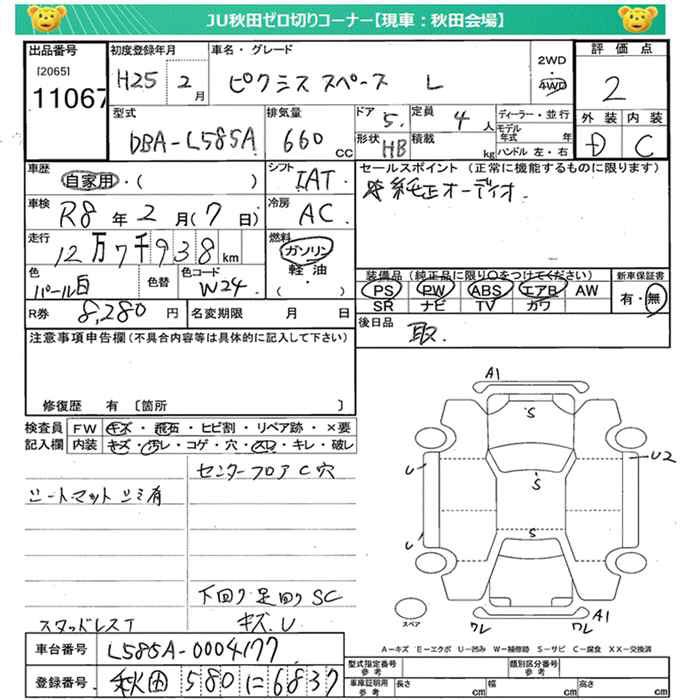 JU秋田ゼロ切りコーナー【現車：秋田会場】
出品番号 初度登録年月 車名・グレード 2WD 4WD 評価点
[2065] 11067 H25 2月 ピクシス スペース L 2
型式 排気量 ドア 定員 ディーラー・並行 外装 内装
DBA-L585A 660 CC 5. 4人 モデル年式 年 D C
形状 HB 積載 kg ハンドル 左・右
車歴 シフト セールスポイント (正常に機能するものに限ります)
自家用・( ) IAT 純正オーディオ.
車検 R8年2月(7日) 冷房 AC
走行 12万7千938km 燃料 ガソリン
軽油
( )
色 パール白 色替 色コード W24. 装備品(純正品に限り○をつけてください) 新車保証書
PS PW ABS エアB AW 有・無
SR ナビ TV カワ
R券 8,280円 名変期限 月 日 後日品
取.
注意事項申告欄(不具合内容等は具体的に記入して下さい)
修復歴 有 〔箇所 〕
検査員 FW キズ・飛石・ヒビ割・リペア跡・×要
記入欄 内装 キズ・汚レ・コゲ・穴・スレ・キレ・破レ
センターフロア C 穴
シートマット シミ有
下回り 足回り SC
スタッドレスT キズ.U
A1
S
U U2
S
S
U
スペア ワレ ワレ A1
A-キズ E-エクボ U-凹み W-補修跡 S-サビ C-腐食 XX-交換済
車台番号 L585A-0004177
登録番号 秋田 580 に 6837
型式指定番号 参考 類別区分番号 参考
車庫証明用 参考 長さ cm 幅 cm 高さ cm